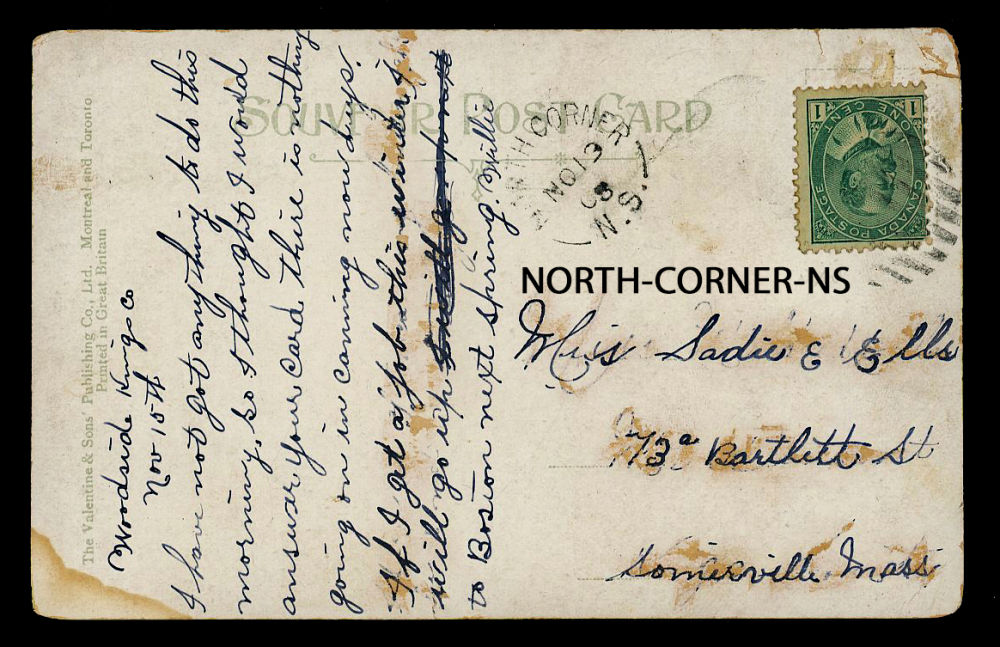 SOUVENIR POST CARD
The Valentine & Sons' Publishing Co., Ltd. Montreal and Toronto
Printed in Great Britain
Woodside Kings Co
Nov 15th
I have not got anything to do this
morning, so I thought I would
answer your card there is nothing
going on in canning now days.
If I get a job this winter I
will go up
to Boston next Spring. Willie
NORTH CORNER
NO 13
08
N.S.
1 ONE CENT 1
CANADA POSTAGE
NORTH-CORNER-NS
Miss Sadie E Ells
73a Bartlett St
Somerville Mass